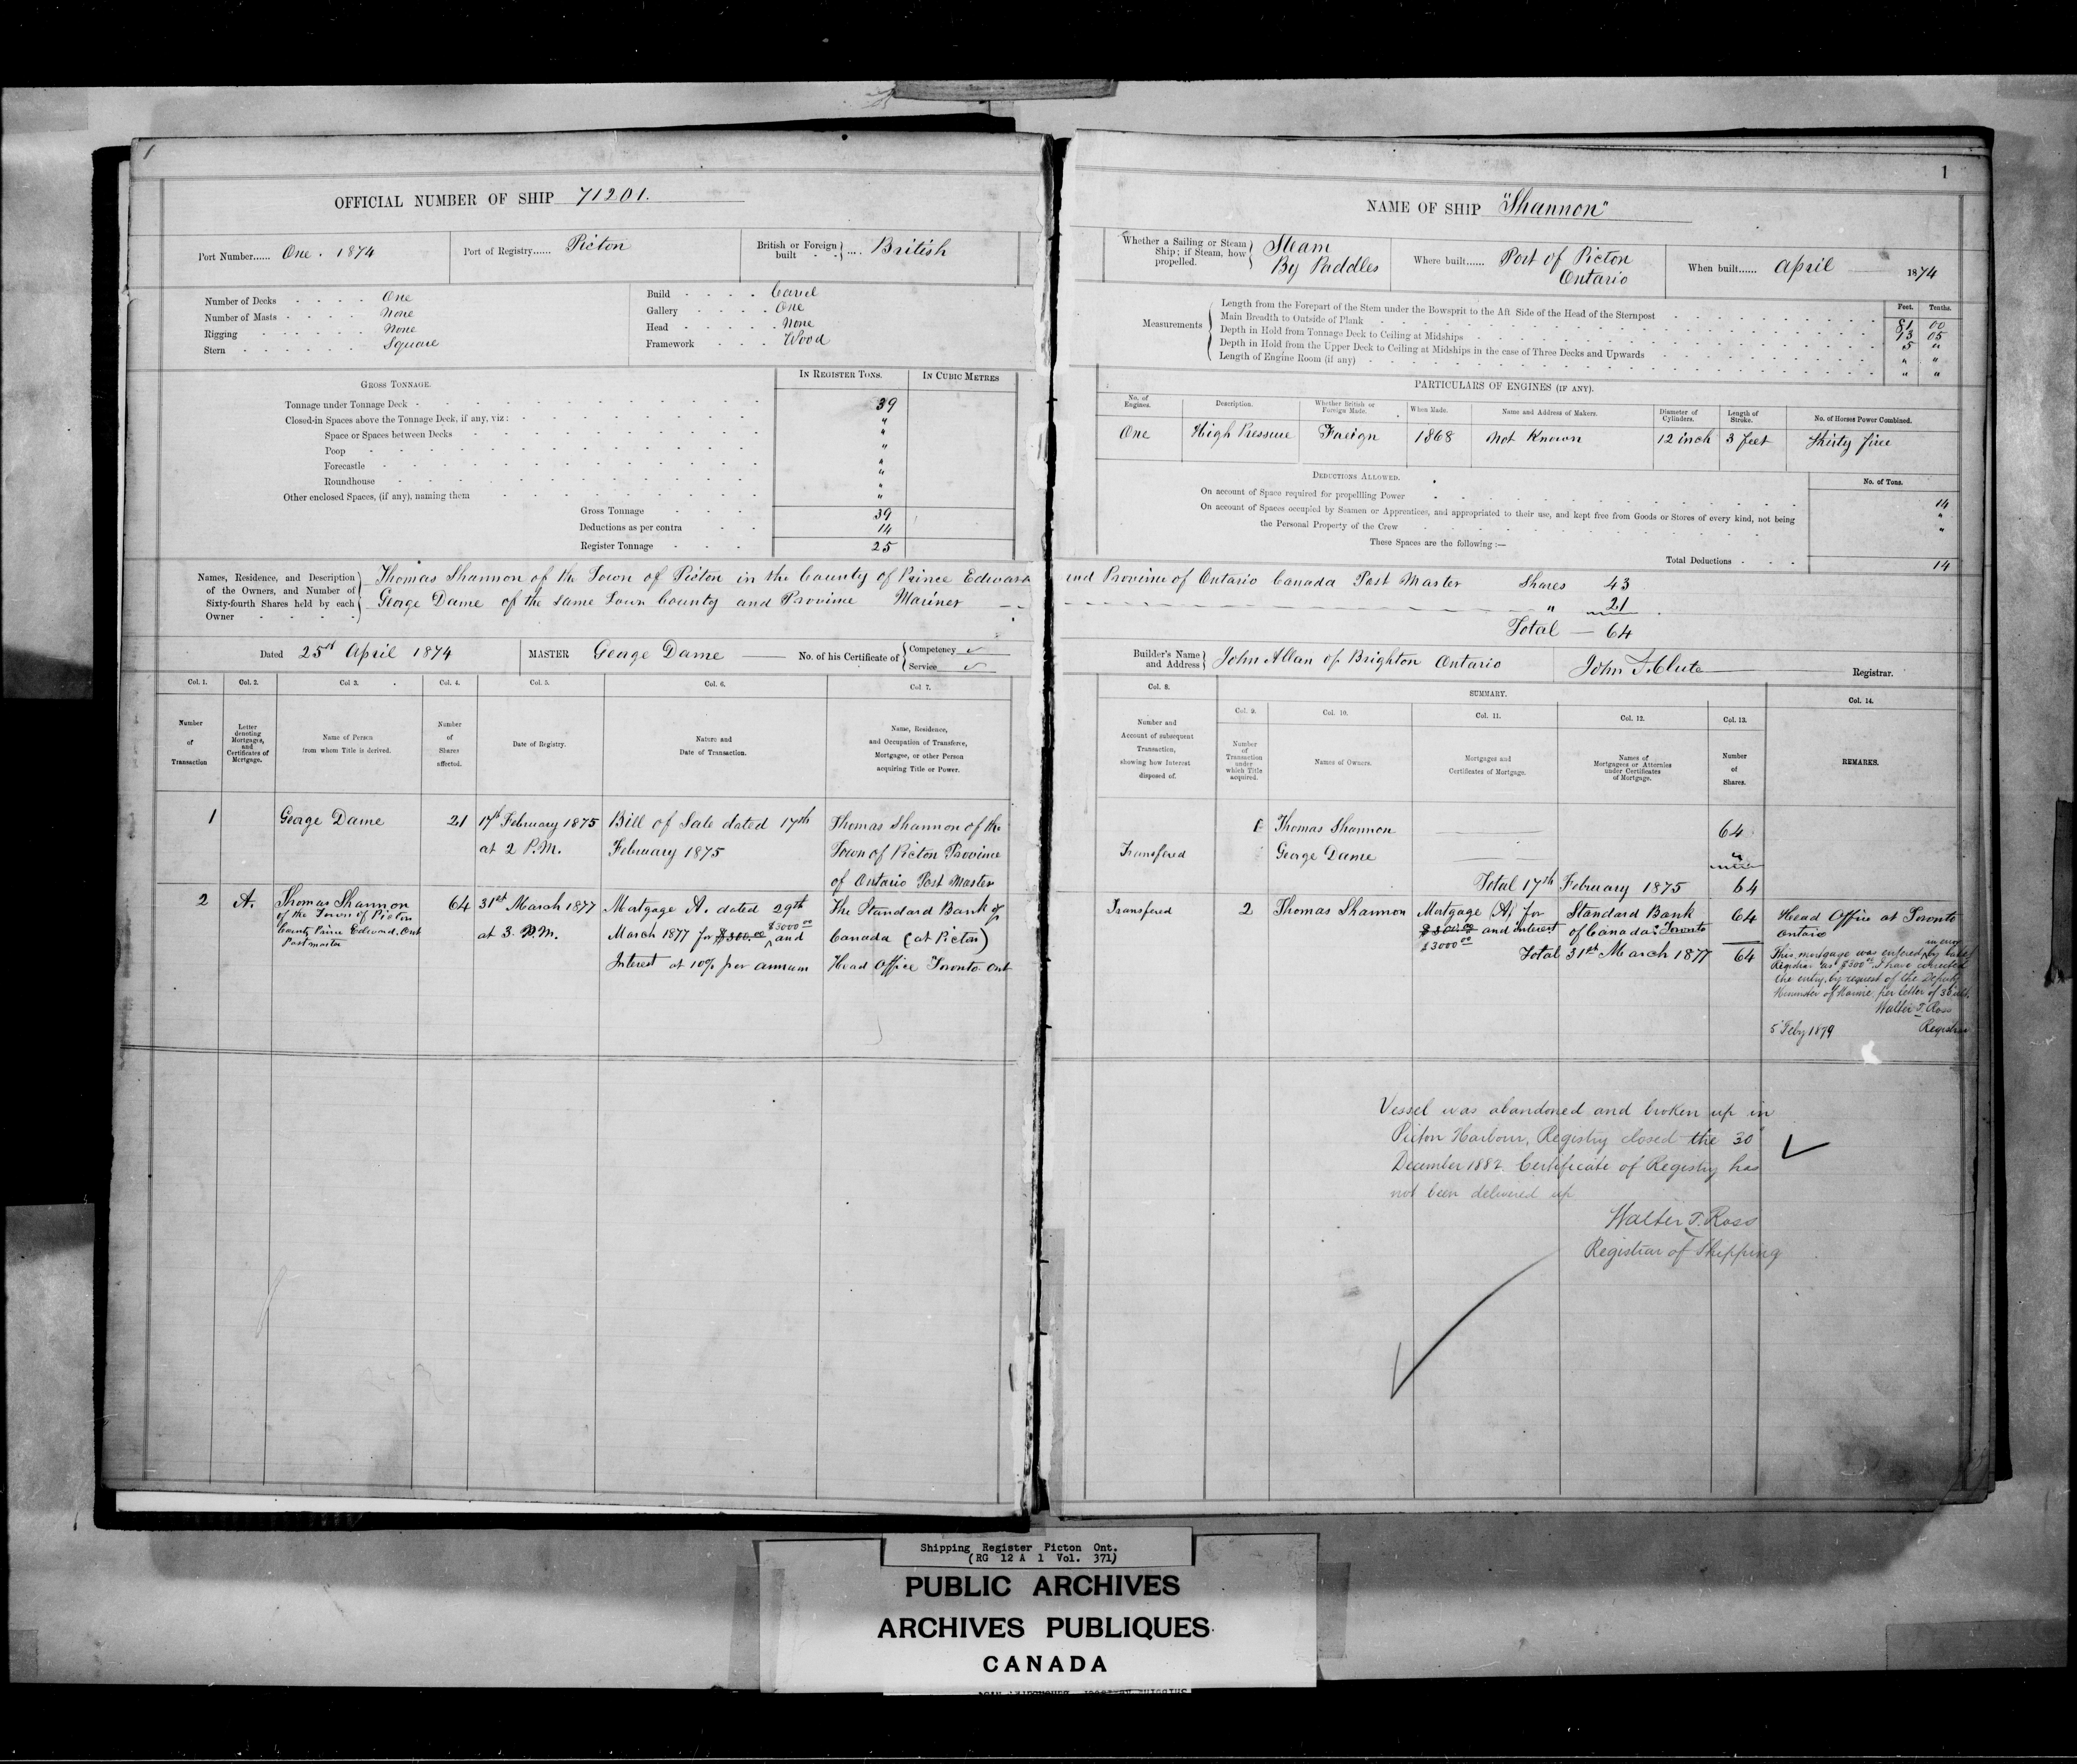 1
OFFICIAL NUMBER OF SHIP 71201.
Port Number...... One . 1874
Port of Registry...... Picton
British or Foreign built .... British
Number of Decks One
Number of Masts None
Rigging None
Stern Square
Build Carvel
Gallery One
Head None
Framework Wood
GROSS TONNAGE.
IN REGISTER TONS.
IN CUBIC METRES
Tonnage under Tonnage Deck 39
Closed-in Spaces above the Tonnage Deck, if any, viz: "
Space or Spaces between Decks "
Poop "
Forecastle "
Roundhouse "
Other enclosed Spaces, (if any), naming them "
Gross Tonnage 39
Deductions as per contra 14
Register Tonnage 25
1
NAME OF SHIP "Shannon"
Whether a Sailing or Steam Ship; if Steam, how propelled. Steam By Paddles
Where built...... Port of Picton Ontario
When built...... April 1874
Measurements
Feet. Tenths.
Length from the Forepart of the Stem under the Bowsprit to the Aft Side of the Head of the Sternpost 81 00
Main Breadth to Outside of Plank 13 05
Depth in Hold from Tonnage Deck to Ceiling at Midships 5 "
Depth in Hold from the Upper Deck to Ceiling at Midships in the case of Three Decks and Upwards " "
Length of Engine Room (if any) " "
PARTICULARS OF ENGINES (IF ANY).
No. of Engines.
Description.
Whether British or Foreign Made.
When Made.
Name and Address of Makers.
Diameter of Cylinders.
Length of Stroke.
No. of Horses Power Combined.
One High Pressure Foreign 1868 Not Known 12 inch 3 feet Thirty five
DEDUCTIONS ALLOWED.
No. of Tons.
On account of Space required for propellling Power 14
On account of Spaces occupied by Seamen or Apprentices, and appropriated to their use, and kept free from Goods or Stores of every kind, not being "
the Personal Property of the Crew "
These Spaces are the following :—
Total Deductions 14
Names, Residence, and Description of the Owners, and Number of Sixty-fourth Shares held by each Owner
Thomas Shannon of the Town of Picton in the County of Prince Edward and Province of Ontario Canada Post Master Shares 43
George Dame of the same Town County and Province Mariner " 21
Total — 64
Dated 25st April 1874
MASTER George Dame
No. of his Certificate of Competency Service
Builder's Name and Address John Allan of Brighton Ontario
John T. Clute Registrar.
Col. 1.
Number of Transaction
Col. 2.
Letter denoting Mortgages, and Certificates of Mortgage.
Col 3.
Name of Person from whom Title is derived.
Col. 4.
Number of Shares affected.
Col. 5.
Date of Registry.
Col. 6.
Nature and Date of Transaction.
Col 7.
Name, Residence, and Occupation of Transferee, Mortgagee, or other Person acquiring Title or Power.
Col. 8.
Number and Account of subsequent Transaction, showing how Interest disposed of.
SUMMARY.
Col. 9.
Number of Transaction under which Title acquired.
Col. 10.
Names of Owners.
Col. 11.
Mortgages and Certificates of Mortgage.
Col. 12.
Names of Mortgagees or Attornies under Certificates of Mortgage.
Col. 13.
Number of Shares.
Col. 14.
REMARKS.
1
George Dame
21
17th February 1875
at 2 P.M.
Bill of Sale dated 17th
February 1875
Thomas Shannon of the
Town of Picton Province
of Ontario Post Master
Transfered
1 Thomas Shannon 64
George Dame "
Total 17th February 1875 64
2
A.
Thomas Shannon
of the Town of Picton
County Prince Edward. Ont
Postmaster
64
31st March 1877
at 3. P.M.
Mortgage A. dated 29th
March 1877 for $300.00 $3000 00 and
Interest at 10% per annum
The Standard Bank of
Canada (at Picton)
Head Office Toronto Ont
Transfered
2
Thomas Shannon
Mortgage (A) for
$300.00 and interest
$3000 00
Standard Bank
of Canada Toronto
64
Total 31st March 1877 64
Head Office at Toronto
Ontario
This mortgage was entered in error by late
Registrar as $300 00 I have corrected
the entry, by request of the Deputy
Minister of Marine, per letter of 30 ult.
Walter T. Ross
5 Feby 1879 Registrar
Vessel was abandoned and broken up in
Picton Harbour, Registry closed the 30
December 1882 Certificate of Registry has
not been delivered up
Walter T. Ross
Registrar of Shipping
Shipping Register Picton Ont.
(RG 12 A 1 Vol. 371)
PUBLIC ARCHIVES
ARCHIVES PUBLIQUES
CANADA